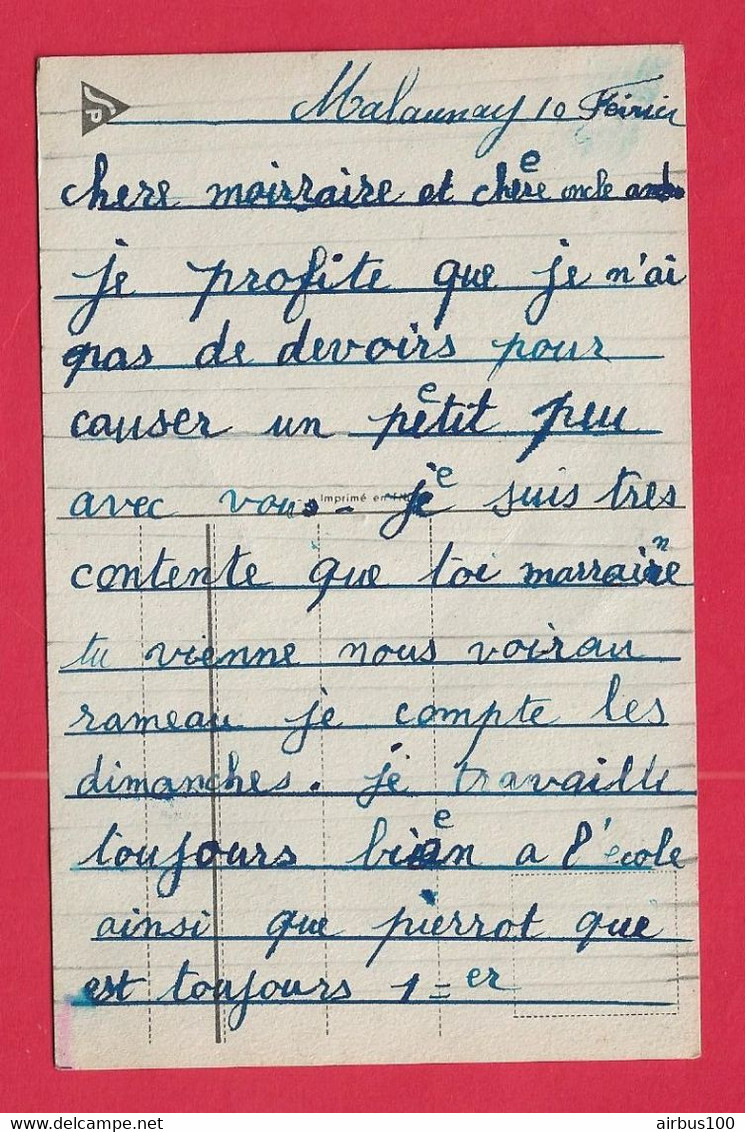 SP
Malaunay 10 Février
chere moirraire et chere oncle
je profite que je n'ai
pas de devoirs pour
causer un petit peu
avec vous. je suis tres
Imprimé en
contente que toi marraine
tu vienne nous voir au
rameau je compte les
dimanches. je travaille
toujours bien a l'école
ainsi que pierrot que
est toujours 1=er
Delcampe.net
airbus100